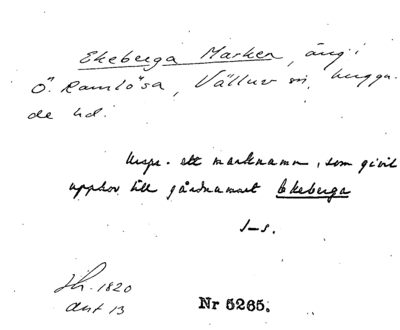 Ekeberga Marken, äng i
Ö. Ramlösa, Välluv sn, Luggu-
de hd.
Urspr. ett marknamn, som givit
upphov till gårdnamnet Ekeberga
J-s.
1820
akt 13
Nr 5265.